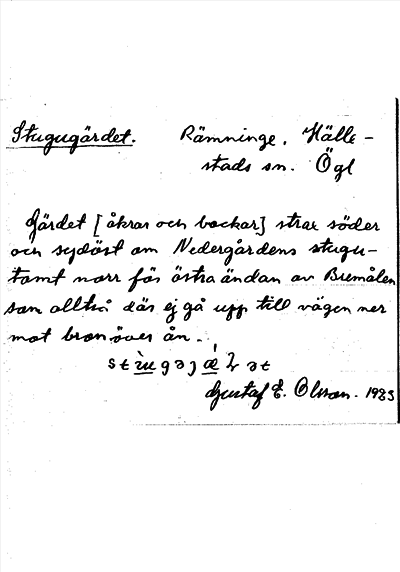 Stugugärdet. Rämninge, Hälle-
stads sn. Ögl
Gärdet [åkrar och backar] strax söder
och sydöst om Nedergårdens stugu-
tomt norr för östra ändan av Bremålen
som alltså där ej gå upp till vägen ner
mot bron över ån.
Gustaf E. Olsson. 1923